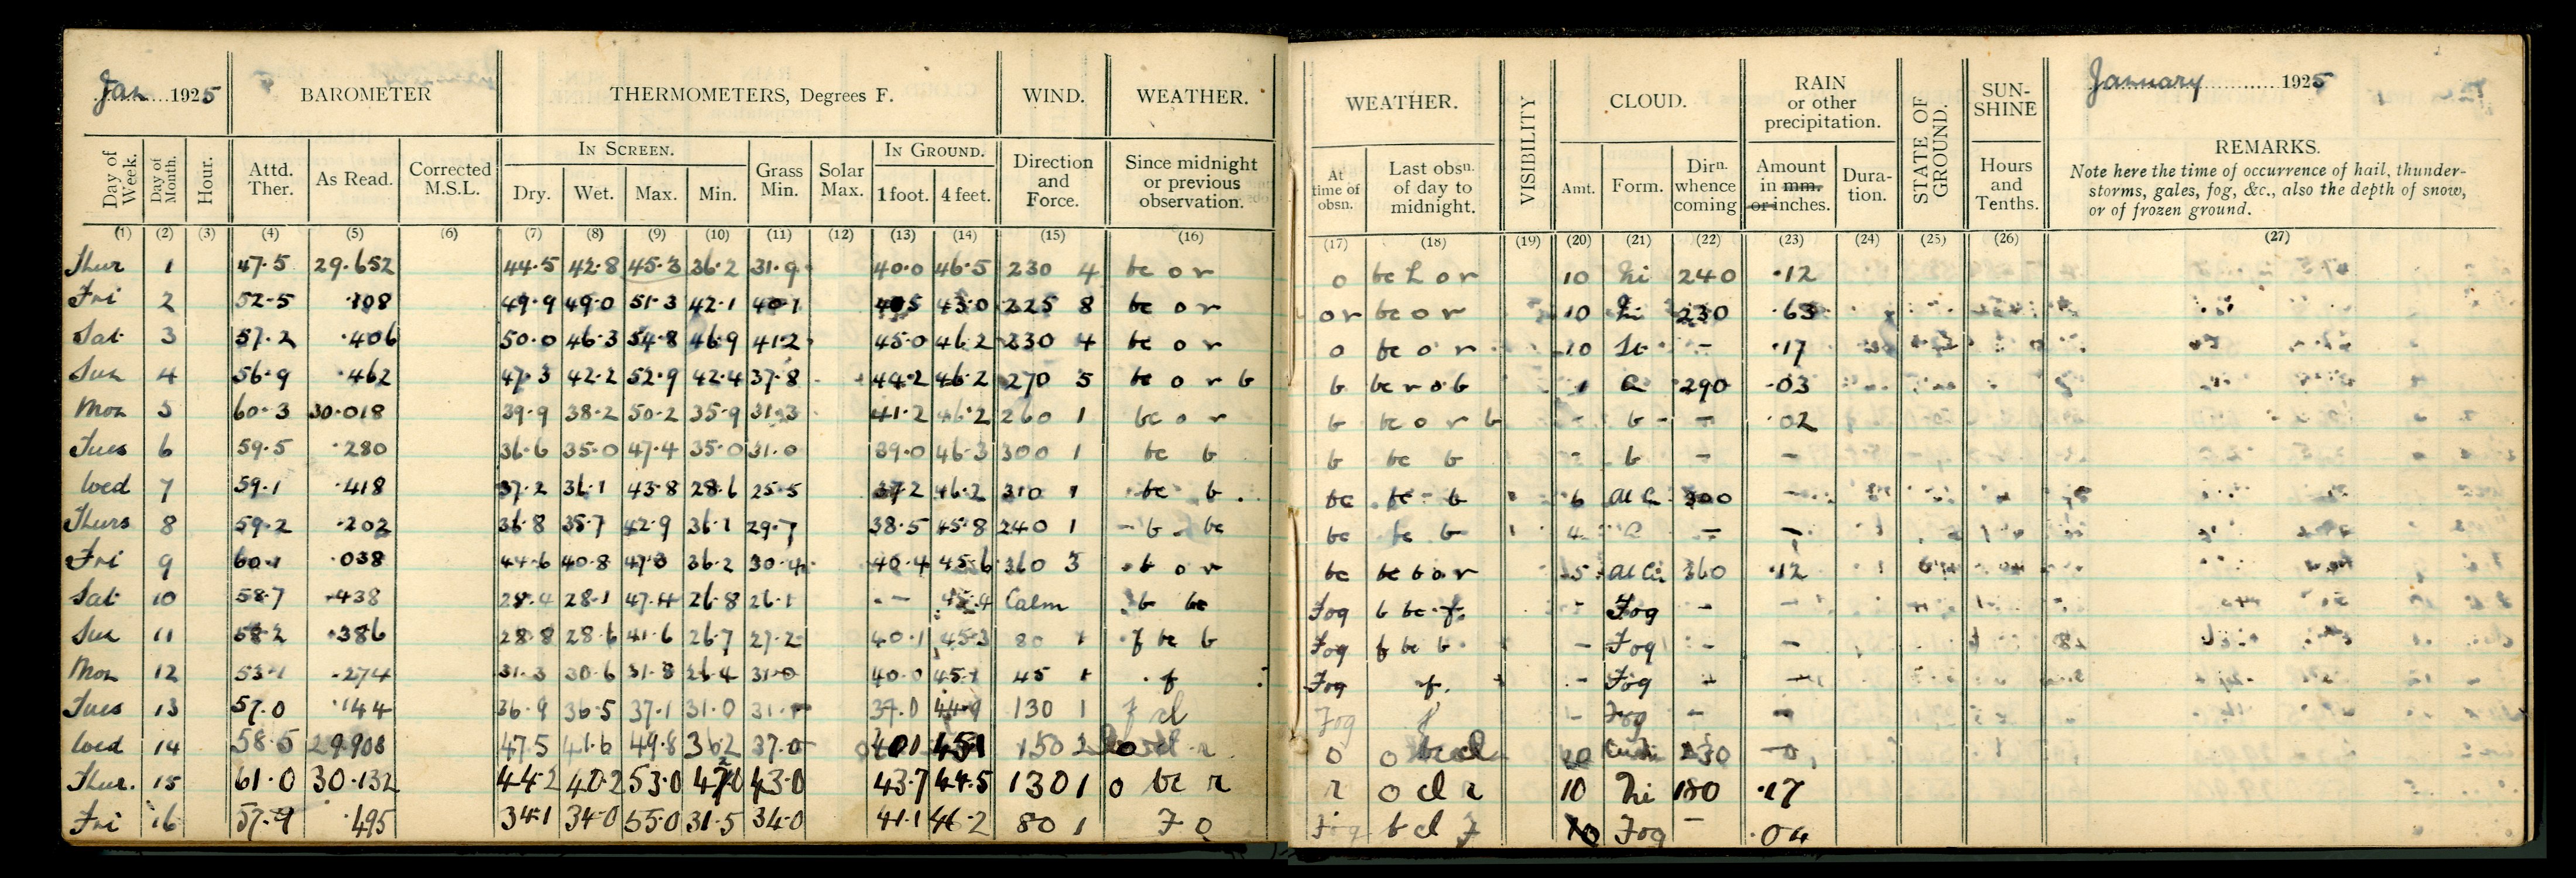 Jan 1925 BAROMETER THERMOMETERS, Degrees F. WIND. WEATHER.
Day of Week. Day of Month. Hour. Attd. Ther. As Read. Corrected M.S.L. IN SCREEN. Dry. Wet. Max. Min. Grass Min. Solar Max. IN GROUND. 1 foot. 4 feet. Direction and Force. Since midnight or previous observation.
(1) (2) (3) (4) (5) (6) (7) (8) (9) (10) (11) (12) (13) (14) (15) (16)
Thur 1 47.5 29.652 44.5 42.8 45.3 36.2 31.9 40.0 46.5 230 4 bc o r
Fri 2 52.5 .108 49.9 49.0 51.3 42.1 40.1 43.0 225 8 bc o r
Sat 3 57.2 .406 50.0 46.3 54.8 46.9 41.2 45.0 46.2 230 4 bc o r
Sun 4 56.9 .462 47.3 42.2 52.9 42.4 37.8 44.2 46.2 270 5 bc o r b
Mon 5 60.3 30.018 39.9 38.2 50.2 35.9 31.3 41.2 46.2 260 1 bc o r
Tues 6 59.5 .280 36.6 35.0 47.4 35.0 31.0 39.0 46.3 300 1 bc b
Wed 7 59.1 .418 37.2 36.1 43.8 28.6 25.5 37.2 46.2 310 1 bc b
Thurs 8 59.2 .202 36.8 35.7 42.9 36.1 29.7 38.5 45.8 240 1 - b bc
Fri 9 60.1 .038 44.6 40.8 47.3 36.2 30.4 40.4 45.6 360 3 b o r
Sat 10 58.7 .438 28.4 28.1 47.4 26.8 26.1 - 45.4 Calm b bc
Sun 11 58.2 .386 28.8 28.6 41.6 26.7 27.2 40.1 45.3 80 1 f bc b
Mon 12 53.1 .274 31.3 30.6 31.8 26.4 31.0 40.0 45.1 45 1 f
Tues 13 57.0 .144 36.9 36.5 37.1 31.0 37.0 44.9 130 1 f cl
Wed 14 58.5 29.908 47.5 41.6 49.8 36.2 37.0 40.1 45.1 150 2 o cl r
Thur. 15 61.0 30.132 44.2 40.2 53.0 43.0 43.7 44.5 130 1 o bc r
Fri 16 57.9 .495 34.1 34.0 55.0 31.5 34.0 41.1 46.2 80 1 F o
WEATHER. VISIBILITY CLOUD. RAIN or other precipitation. STATE OF GROUND. SUN-SHINE January 1925
At time of obsn. Last obsn. of day to midnight. Amt. Form. Dirn. whence coming Amount in mm. or inches. Duration. Hours and Tenths. REMARKS.
Note here the time of occurrence of hail, thunder-
storms, gales, fog, &c., also the depth of snow,
or of frozen ground.
(17) (18) (19) (20) (21) (22) (23) (24) (25) (26) (27)
o bc h o r 10 Ni 240 .12
or bc o r 10 Ni 230 .63
o bc o r 10 St - .17
b bc r o b 1 290 .03
b bc o r b - b - - .02
b bc b - b - -
bc bc - b 6 Al Ci 300 -
bc bc b 4 - -
bc bc b o r 5 Al Ci 360 .12
Fog b bc f - Fog - -
Fog f bc b - Fog - -
Fog f. - Fog - -
Fog f - Fog - -
o o bc cl 10 230 -
r o cl r 10 Ni 180 .17
Fog b cl F 10 Fog - .04